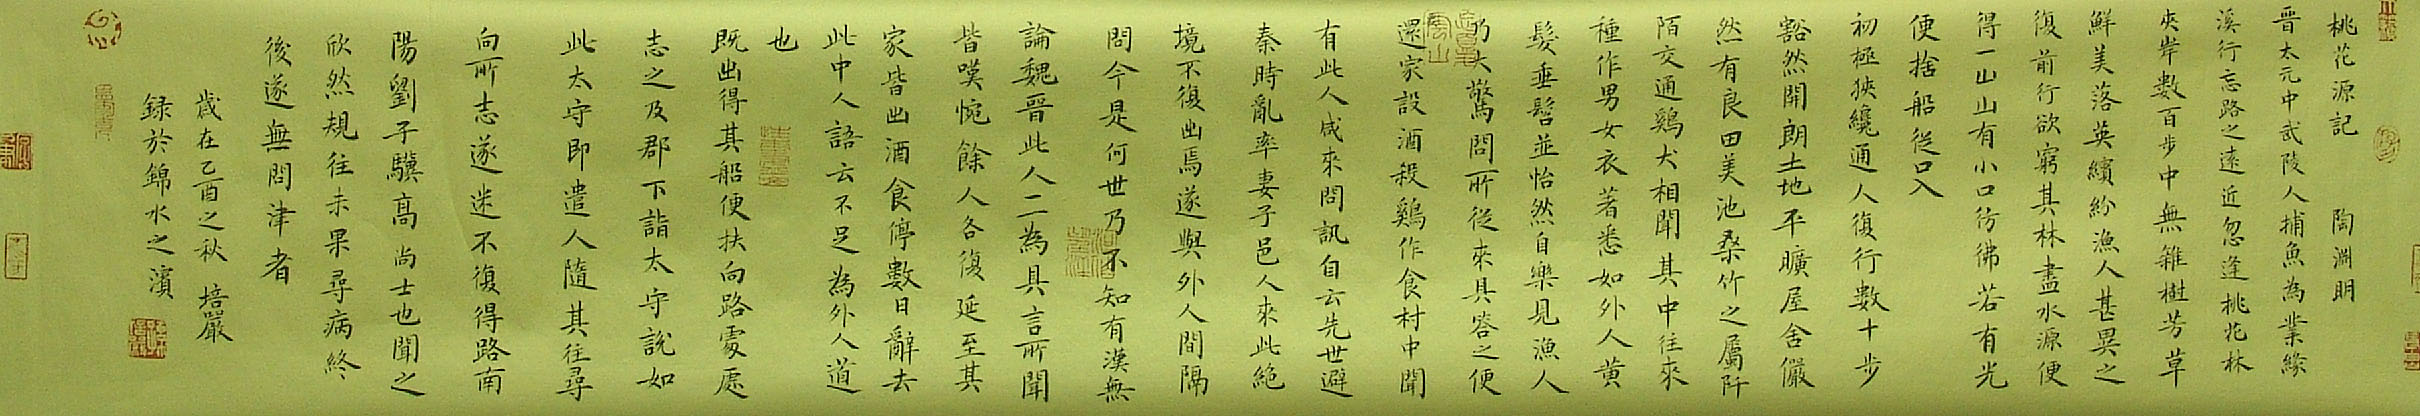 桃花源記 陶淵明
晉太元中武陵人捕魚為業緣
溪行忘路之遠近忽逢桃花林
夾岸數百步中無雜樹芳草
鮮美落英繽紛漁人甚異之
復前行欲窮其林林盡水源便
得一山山有小口彷彿若有光
便捨船從口入
初極狹纔通人復行數十步
豁然開朗土地平曠屋舍儼
然有良田美池桑竹之屬阡
陌交通鷄犬相聞其中往來
種作男女衣著悉如外人黄
髮垂髫並怡然自樂見漁人
乃大驚問所從來具答之便
還家設酒殺鷄作食村中聞
有此人咸來問訊自云先世避
秦時亂率妻子邑人來此絶
境不復出焉遂與外人間隔
問今是何世乃不知有漢無
論魏晉此人一一為具言所聞
皆嘆惋餘人各復延至其
家皆出酒食停數日辭去
此中人語云不足為外人道
也
既出得其船便扶向路處處
志之及郡下詣太守說如
此太守即遣人隨其往尋
向所志遂迷不復得路南
陽劉子驥高尚士也聞之
欣然規往未果尋病終
後遂無問津者
歲在乙酉之秋 培嚴
録於錦水之濱